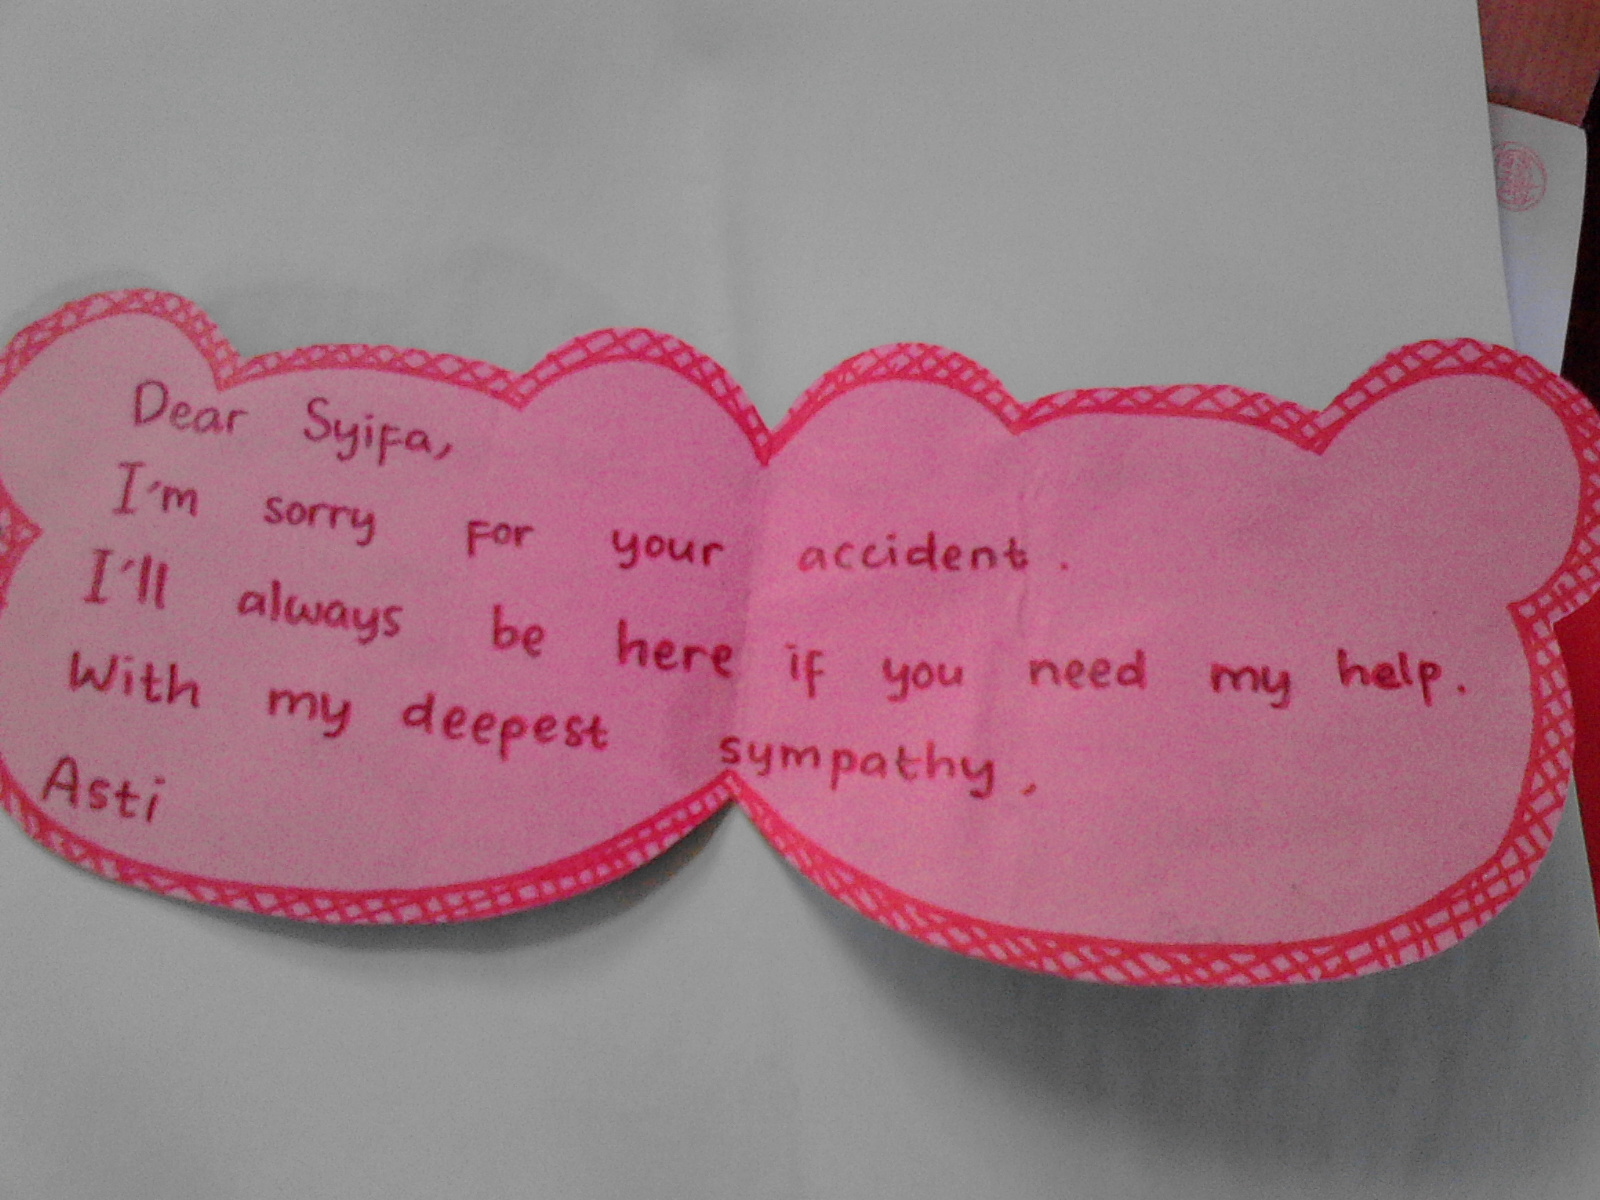 Dear Syifa,
I'm sorry for your accident.
I'll always be here if you need my help.
With my deepest sympathy,
Asti